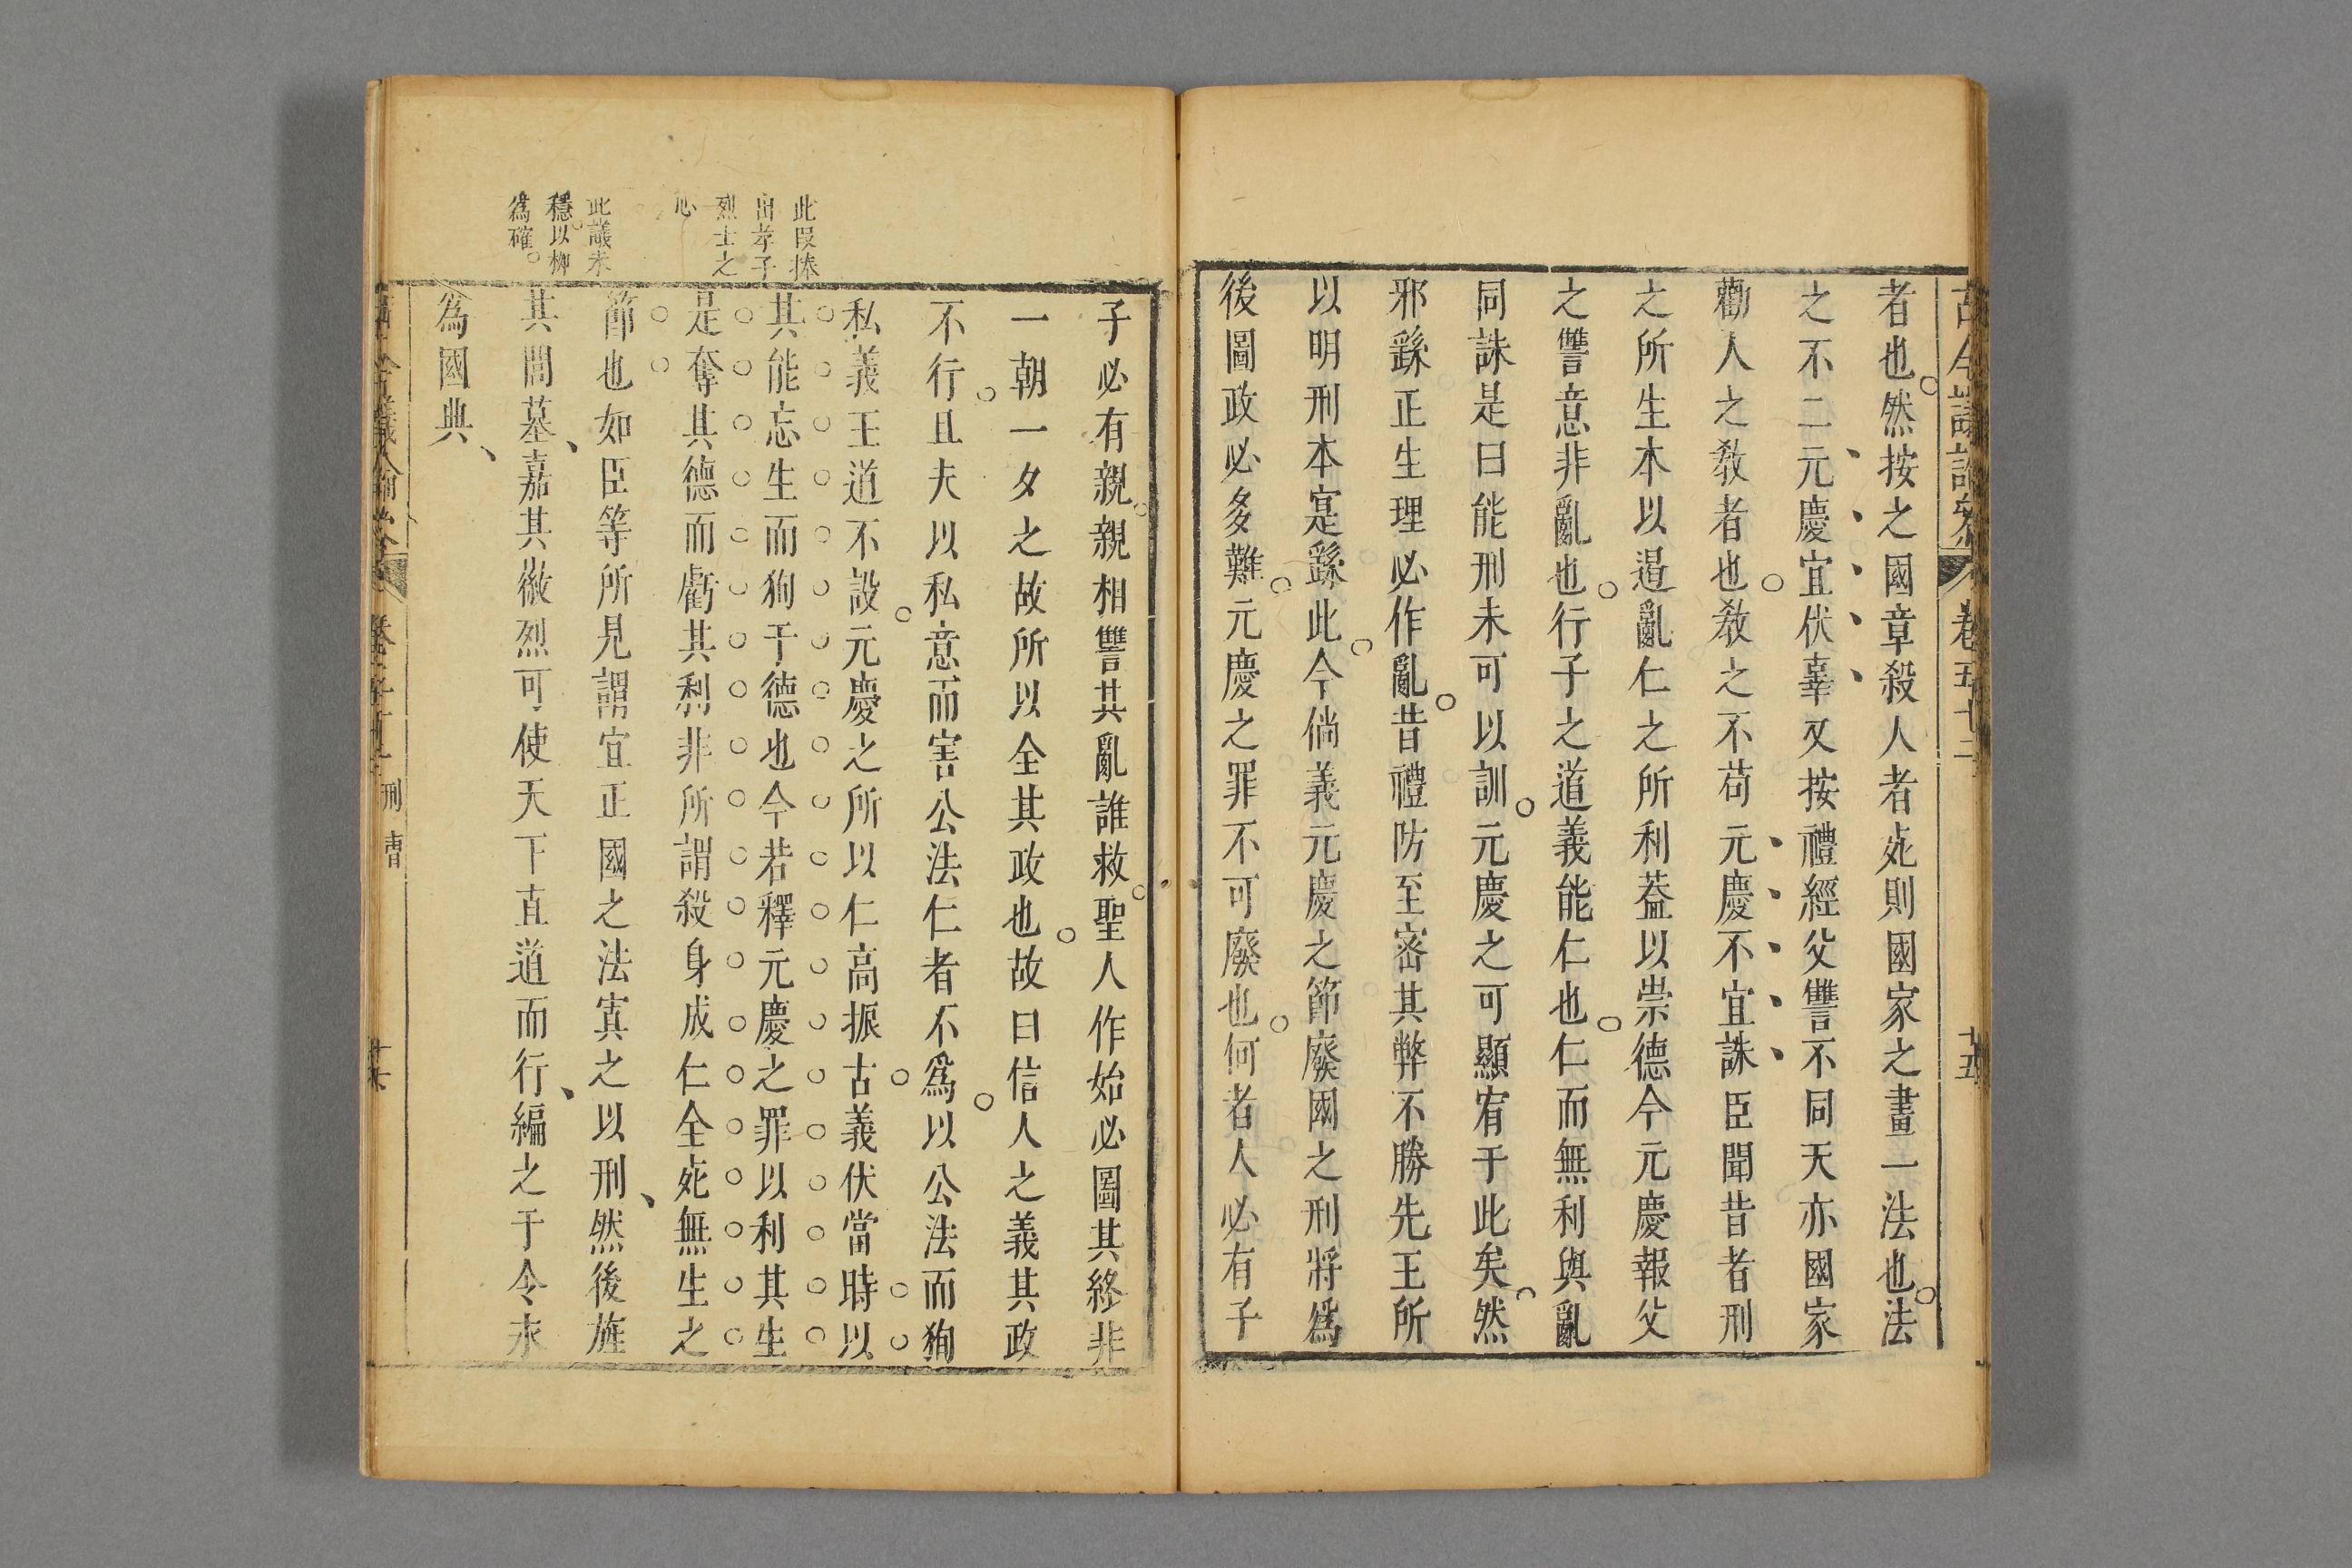 者也然按之國章殺人者死則國家之畫一法也法
之不二元慶宜伏辜又按禮經父讐不同天亦國家
勸人之教者也教之不苟元慶不宜誅臣聞昔者刑
之所生本以遏亂仁之所利葢以崇德今元慶報父
之讐意非亂也行子之道義能仁也仁而無利與亂
同誅是曰能刑未可以訓元慶之可顯宥于此矣然
邪繇正生理必作亂昔禮防至密其弊不勝先王所
以明刑本寔繇此今倘義元慶之節廢國之刑將爲
後圖政必多難元慶之罪不可廢也何者人必有子
子必有親親相讐其亂誰救聖人作始必圖其終非
一朝一夕之故所以全其政也故曰信人之義其政
不行且夫以私意而害公法仁者不爲以公法而狥
私義王道不設元慶之所以仁高振古義伏當時以
其能忘生而狥于德也今若釋元慶之罪以利其生
是奪其德而虧其利非所謂殺身成仁全死無生之
節也如臣等所見謂宜正國之法寘之以刑然後旌
其閭墓嘉其徽烈可使天下直道而行編之于令永
爲國典
此段捧
出孝子
烈士之
心
此議未
穩以柳
爲確
卷五十二
十五
刑曹